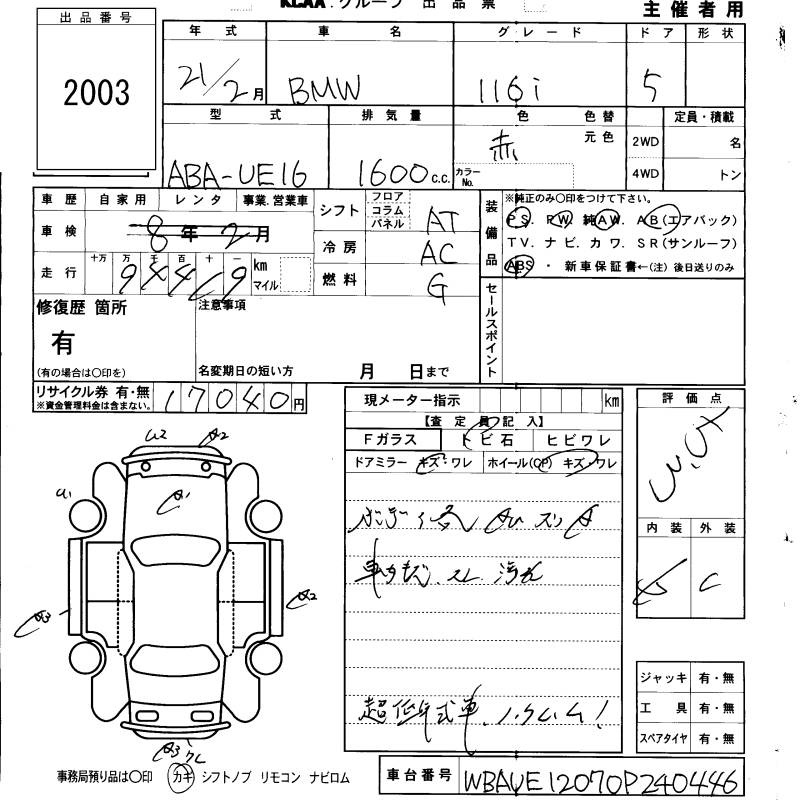 KCAA.グループ 出品票
主催者用
出品番号
2003
年式 車名 グレード ドア 形状
21/2月 BMW 116i 5
型式 排気量 色 色替 定員・積載
元色
ABA-UE16 1600c.c. 赤
カラーNo.
2WD 名
4WD トン
車歴 自家用 レンタ 事業.営業車
車検 8年2月
走行 十万 万 千 百 十 km マイル
シフト フロア コラム パネル AT
冷房 AC
燃料 G
装備品
※純正のみ〇印をつけて下さい。
PS. PW. 純AW. AB(エアバック)
TV. ナビ. カワ. SR(サンルーフ)
ABS ・ 新車保証書←(注)後日送りのみ
修復歴 箇所
有
(有の場合は〇印を)
注意事項
名変期日の短い方 月 日まで
セールスポイント
リサイクル券 有・無
※資金管理料金は含まない。
17040円
現メーター指示 km
【査定員記入】
Fガラス トビ石 ヒビワレ
ドアミラー キズ・ワレ ホイール(CP) キズ・ワレ
評価点
内装 外装
C
U2 A2
A1
U1
A2
A3
A3 ワレ
超低年式車、ノークレーム!
ジャッキ 有・無
工具 有・無
スペアタイヤ 有・無
事務局預り品は〇印 カギ シフトノブ リモコン ナビロム
車台番号 WBAUE12070P240446